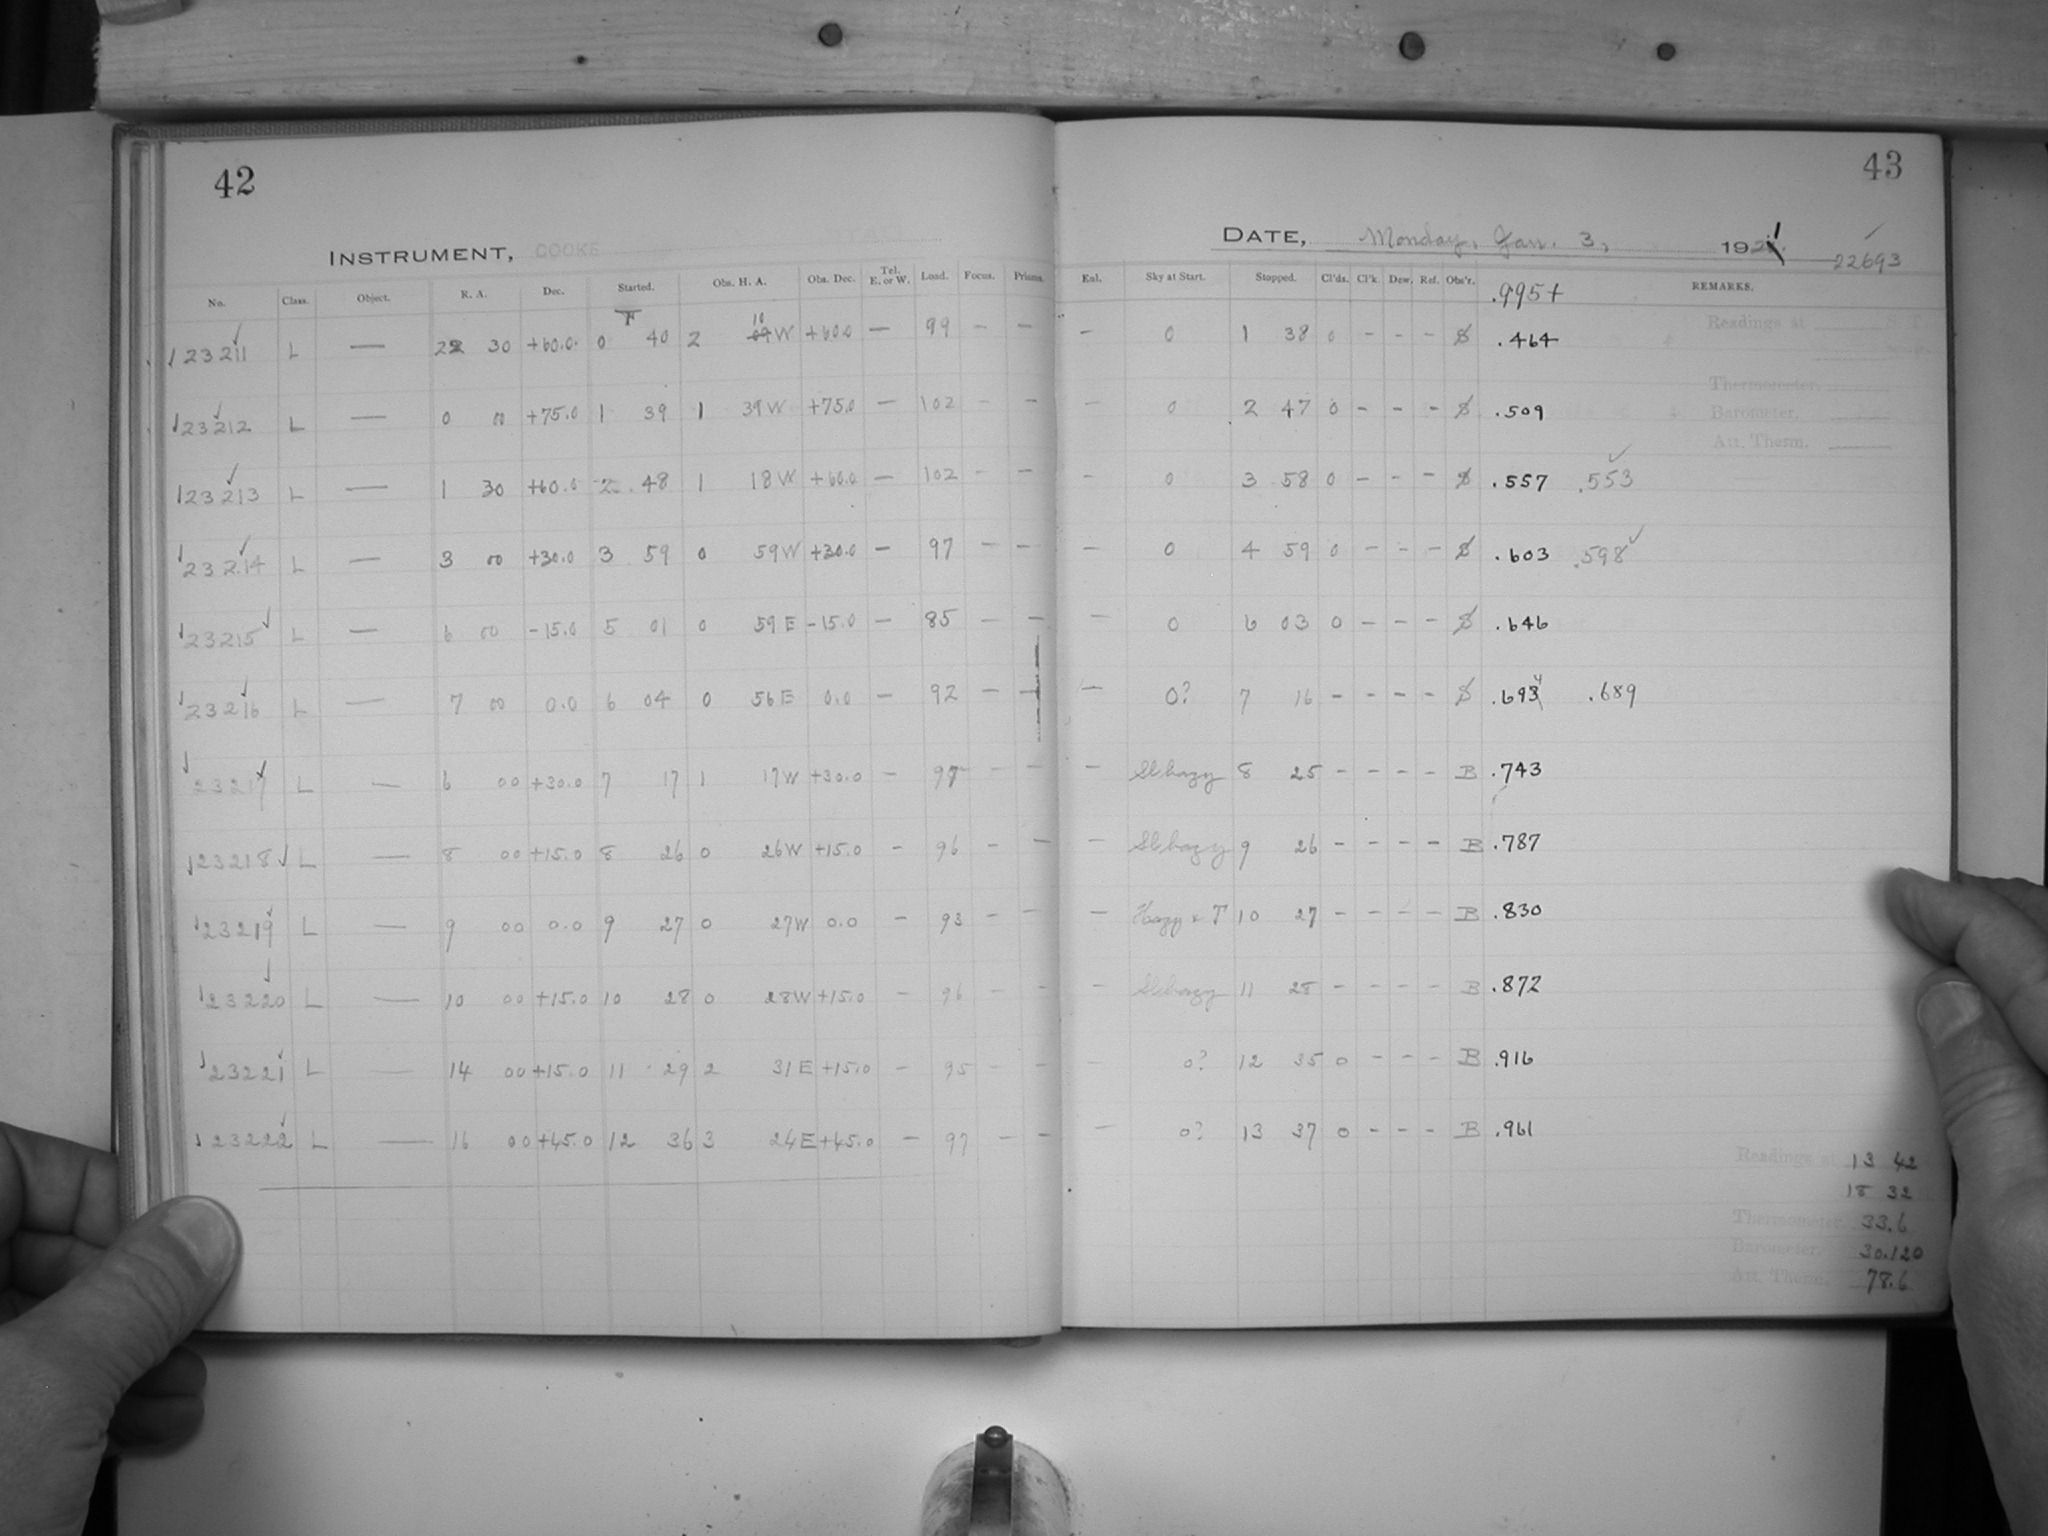 42
INSTRUMENT, COOKE
No. Class. Object. R. A. Dec. Started. Obs. H. A. Obs. Dec. Tel. E. or W. Load. Focus. Prisms.
23211 L — 22 30 +60.0 0 40 2 10 W +60.0 — 99 – –
23212 L — 0 00 +75.0 1 39 1 39 W +75.0 — 102 – –
23213 L — 1 30 +60.0 2 48 1 18 W +60.0 — 102 – –
23214 L — 3 00 +30.0 3 59 0 59 W +30.0 — 97 – –
23215 L — 6 00 -15.0 5 01 0 59 E -15.0 — 85 – –
23216 L — 7 00 0.0 6 04 0 56 E 0.0 – 92 – –
23217 L — 6 00 +30.0 7 17 1 17 W +30.0 – 97 – –
23218 L — 8 00 +15.0 8 26 0 26 W +15.0 – 96 – –
23219 L — 9 00 0.0 9 27 0 27 W 0.0 – 93 – –
23220 L — 10 00 +15.0 10 28 0 28 W +15.0 – 96 – –
23221 L — 14 00 +15.0 11 29 2 31 E +15.0 – 95 – –
23222 L — 16 00 +45.0 12 36 3 24 E +45.0 – 97 – –
43
DATE, Monday, Jan. 3, 1921
22693
Enl. Sky at Start. Stopped. Cl'ds. Cl'k. Dew. Ref. Obs'r. .995+ REMARKS.
– 0 1 38 0 – – – S .464
– 0 2 47 0 – – – S .509
– 0 3 58 0 – – – S .557 .553
– 0 4 59 0 – – – S .603 .598
– 0 6 03 0 – – – S .646
– 0? 7 16 – – – – S .694 .689
– Sl. hazy 8 25 – – – – B .743
– Sl. hazy 9 26 – – – – B .787
– Hazy & T 10 27 – – – – B .830
– Sl. hazy 11 28 – – – – B .872
– 0? 12 35 0 – – – B .916
– 0? 13 37 0 – – – B .961
Readings at
Thermometer.
Barometer.
Att. Therm.
Readings at 13 42
18 32
Thermometer. 33.6
Barometer. 30.120
Att. Therm. 78.6